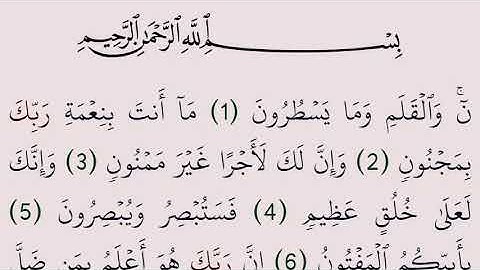 بِسْمِ ٱللَّهِ ٱلرَّحْمَٰنِ ٱلرَّحِيمِ
نٓۚ وَٱلْقَلَمِ وَمَا يَسْطُرُونَ (1) مَآ أَنتَ بِنِعْمَةِ رَبِّكَ
بِمَجْنُونٖ (2) وَإِنَّ لَكَ لَأَجْرًا غَيْرَ مَمْنُونٖ (3) وَإِنَّكَ
لَعَلَىٰ خُلُقٍ عَظِيمٖ (4) فَسَتُبْصِرُ وَيُبْصِرُونَ (5)
بِأَييِّكُمُ ٱلْمَفْتُونُ (6) إِنَّ رَبَّكَ هُوَ أَعْلَمُ بِمَن ضَلَّ